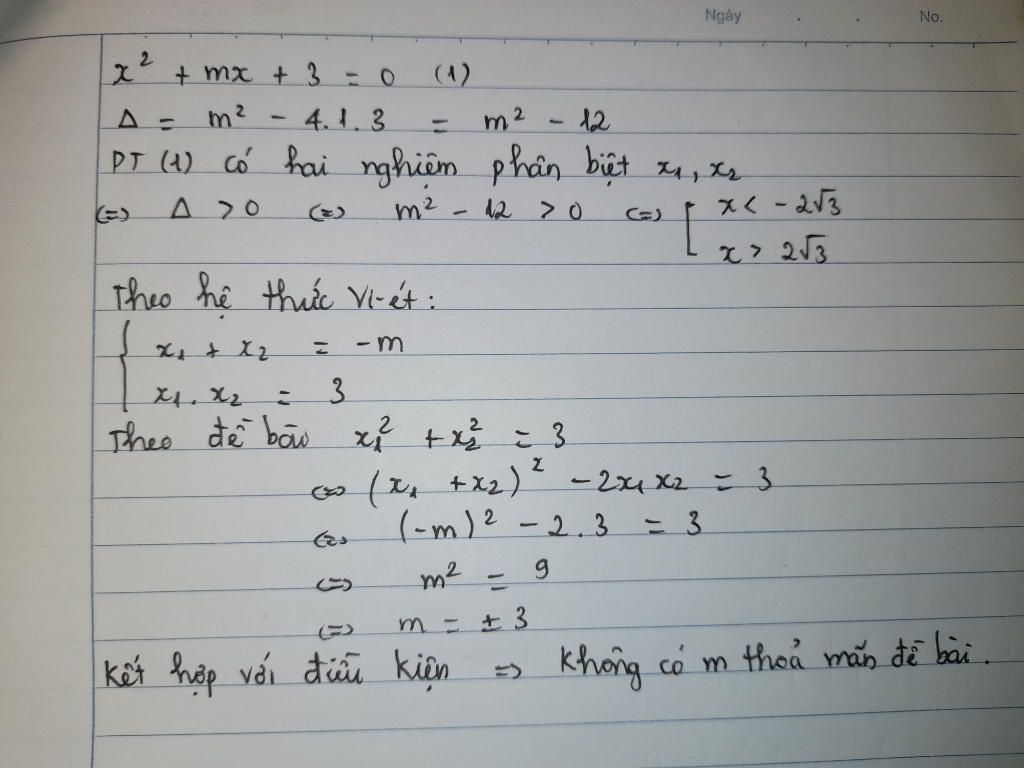 Ngày . . No.
x² + mx + 3 = 0 (1)
Δ = m² - 4.1.3 = m² - 12
PT (1) có hai nghiệm phân biệt x₁, x₂
<=> Δ > 0 <=> m² - 12 > 0 <=> [ x < -2√3
x > 2√3
Theo hệ thức Vi-ét:
{ x₁ + x₂ = -m
x₁ . x₂ = 3
Theo đề bài x₁² + x₂² = 3
<=> (x₁ + x₂)² - 2x₁x₂ = 3
<=> (-m)² - 2.3 = 3
<=> m² = 9
<=> m = ± 3
Kết hợp với điều kiện => Không có m thoả mãn đề bài.